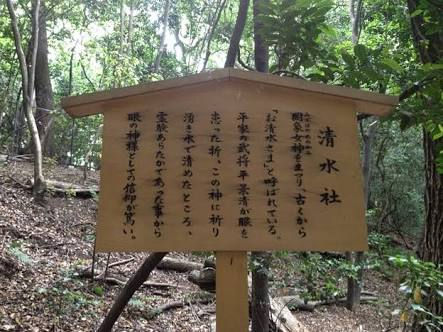 清水社
罔象女神を主祀り、古くから
「お清水さま」と呼ばれている。
平家の武将平景清が眼を
患った折、この神に祈り
湧き水で清めたところ、
霊験あらたかであった事から
眼の神様としての信仰が篤い。